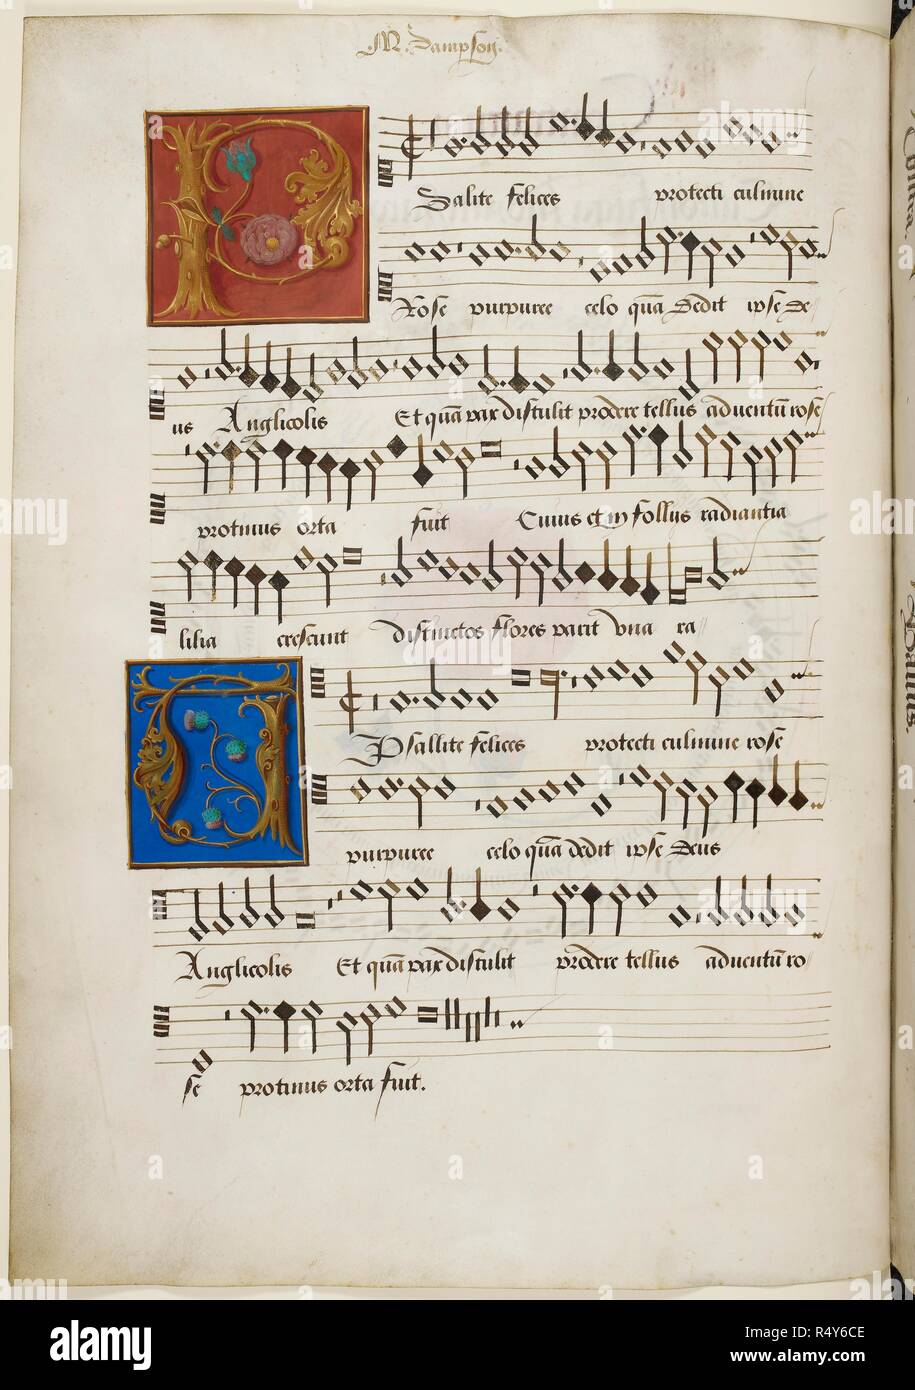 M. Sampson.
P
Salite felices protecti culmine
Rose purpuree celo quā dedit ipse de
us Anglicolis Et quā pax distulit prodere tellus aduentū rose
protinus orta fuit Cuius et in follijs radiantia
lilia crescunt distinctos flores parit vna ra
Psallite felices protecti culmine rose
purpuree celo quā dedit ipse Deus
Anglicolis Et quā pax distulit prodere tellus aduentū ro
se protinus orta fuit.
Contra
alamy
alamy
Image ID: R4Y6CE
www.alamy.com